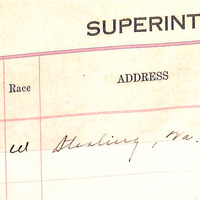 SUPERINT
Race ADDRESS
W Sterling, Va.